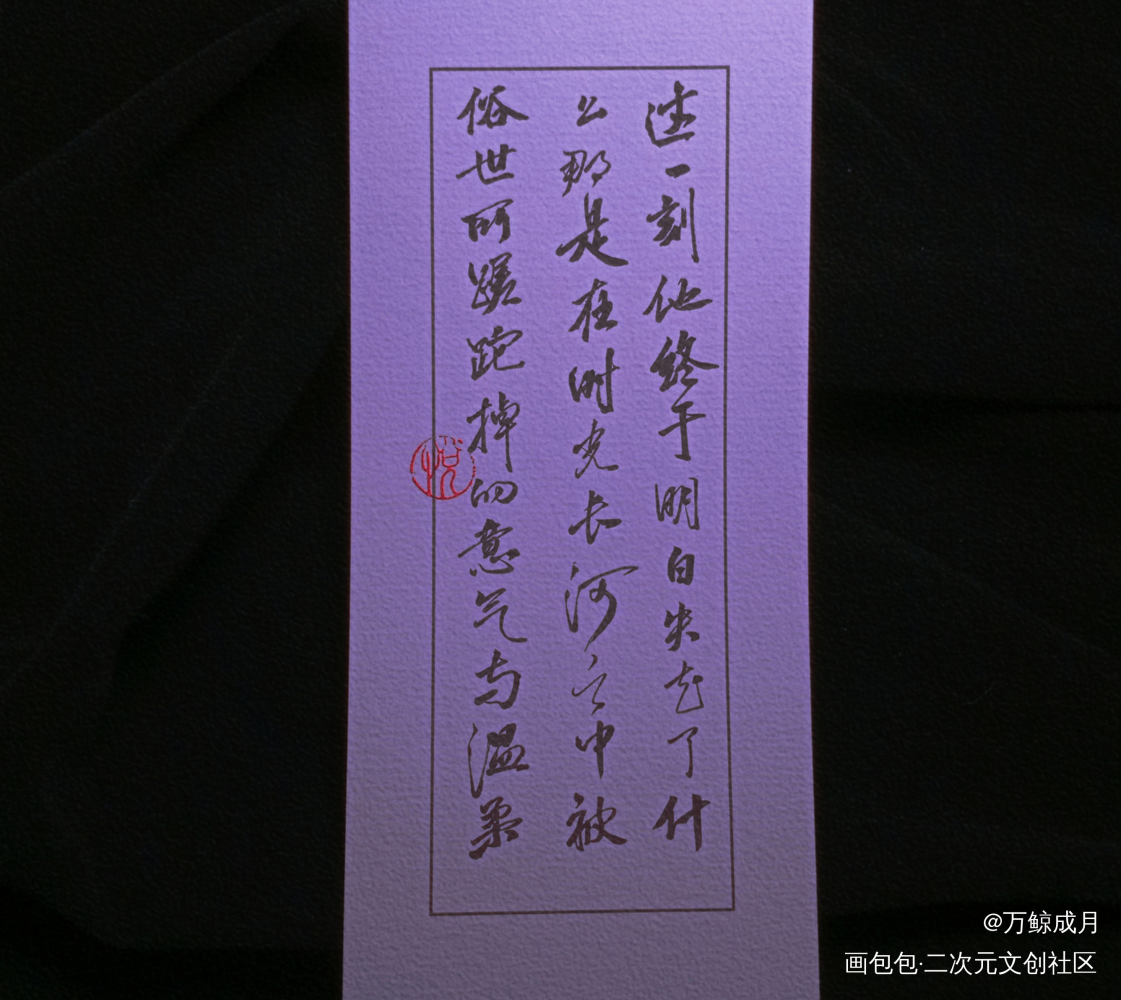 这一刻他终于明白失去了什
么那是在时光长河之中被
俗世所蹉跎掉的意气与温柔
悦
@万鲸成月
画包包·二次元文创社区